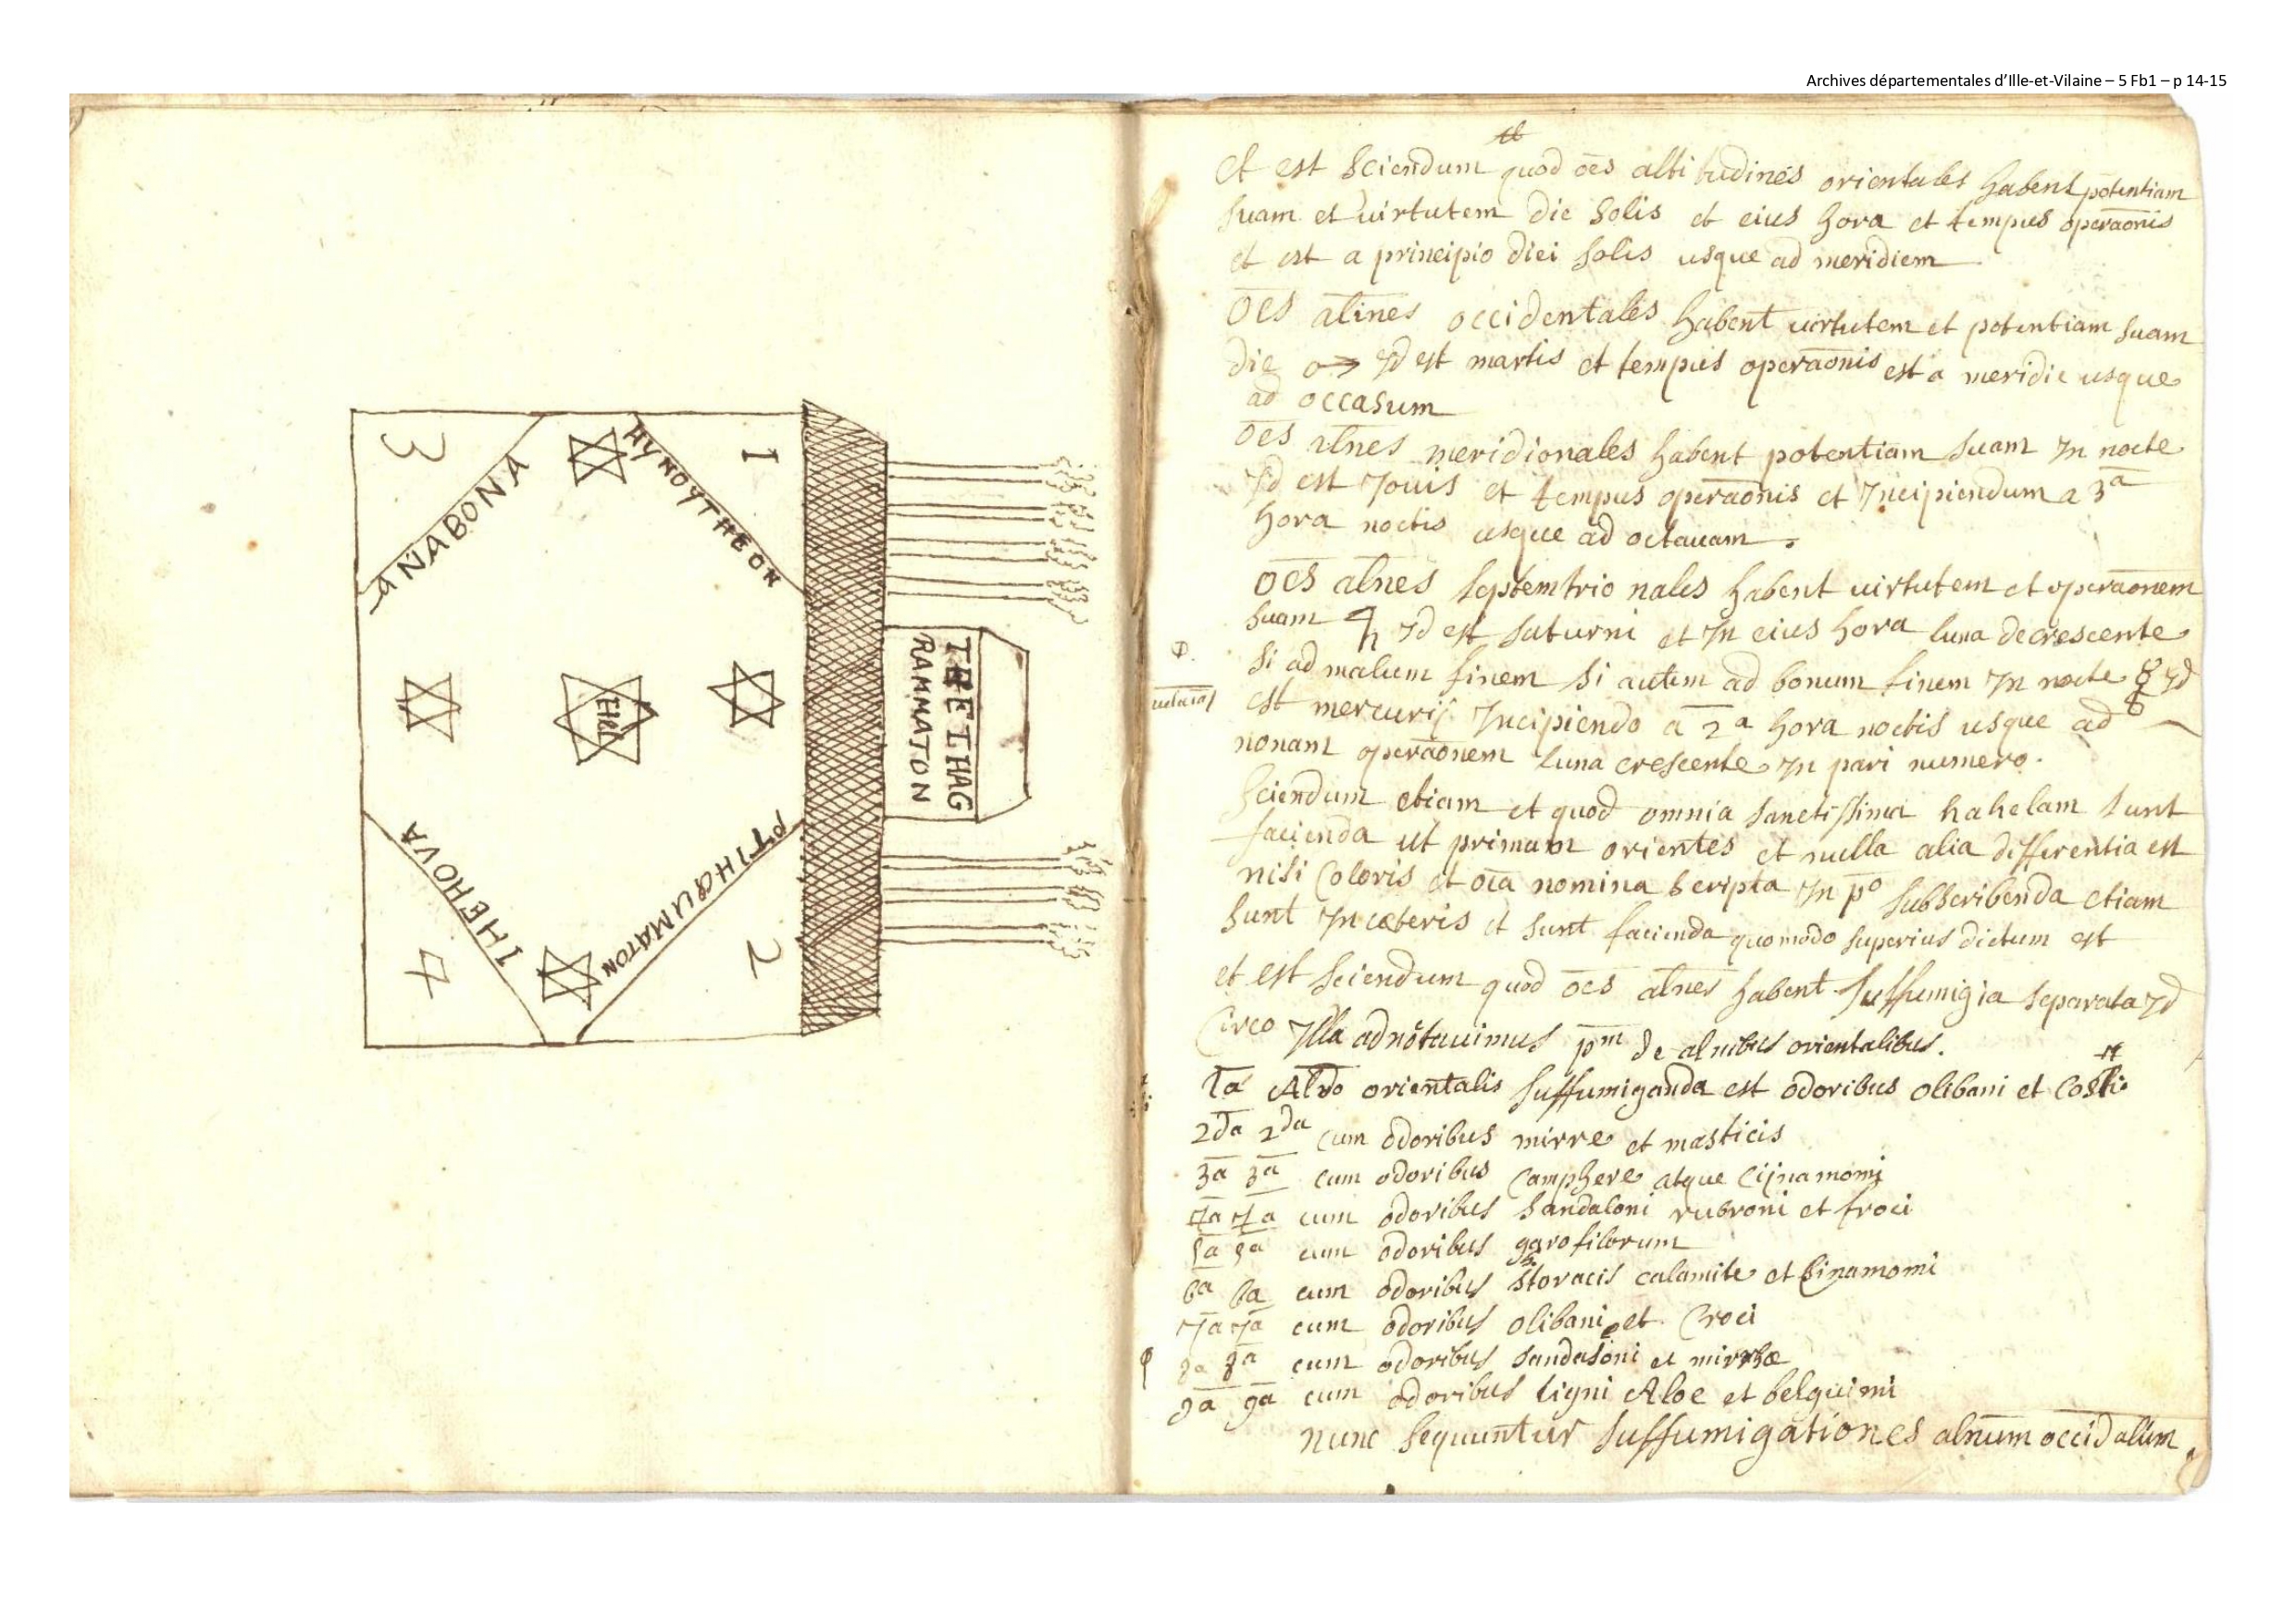 Archives départementales d’Ille-et-Vilaine – 5 Fb1 – p 14-15
3
ANABONA
HYNOYTHEON
1
Hel
THETHAG
RAMMATON
IHEHOVA
4
PTIHQUMATON
2
et est sciendum quod oēs altitudines orientales habent potentiam
suam et uirtutem die solis et eius hora et tempus operaōnis
et est a principio diei solis usque ad meridiem
Oēs altnes occidentales habent uirtutem et potentiam suam
die ♂ yd est martis et tempus operaōnis est a meridie usque
ad occasum
oēs altnes meridionales habent potentiam suam yn nocte
yd est Jouis et tempus operaōnis et yncipiendum a 3ᵃ
hora noctis usque ad octauam.
oēs alnes septemtrio nales habent uirtutem et operaōnem
suam ♄ yd est saturni et yn eius hora luna decrescente
si ad malum finem si autem ad bonum finem yn nocte ☿ yd
est mercurij yncipiendo a 2ᵃ hora noctis usque ad
nonam operaōnem luna crescente yn pari numero.
sciendum etiam et quod omnia sanctissima hahelam sunt
facienda ut primam orientes et nulla alia differentia est
nisi coloris et oīa nomina scripta yn pº subscribenda etiam
sunt yn cæteris et sunt facienda quomodo superius dictum est
et est sciendum quod oēs alnes habent suffumigia separata yd
circo ylla adnotauimus pᵐ de alnibus orientalibus.
1a Altdo orientalis suffumiganda est odoribus olibani et costi
2da 2da cum odoribus mirre et masticis
3a 3a cum odoribus camphere atque cijnamomi
4a 4a cum odoribus sandaloni rubroni et croci
5a 5a cum odoribus garofilorum
6a 6a cum odoribus storacis calamite et cinamomi
7a 7a cum odoribus olibani et croci
8a 8a cum odoribus sandaloni et mirrhæ
9a 9a cum odoribus ligni Aloe et belguimi
nunc sequuntur suffumigationes alnum occidalium